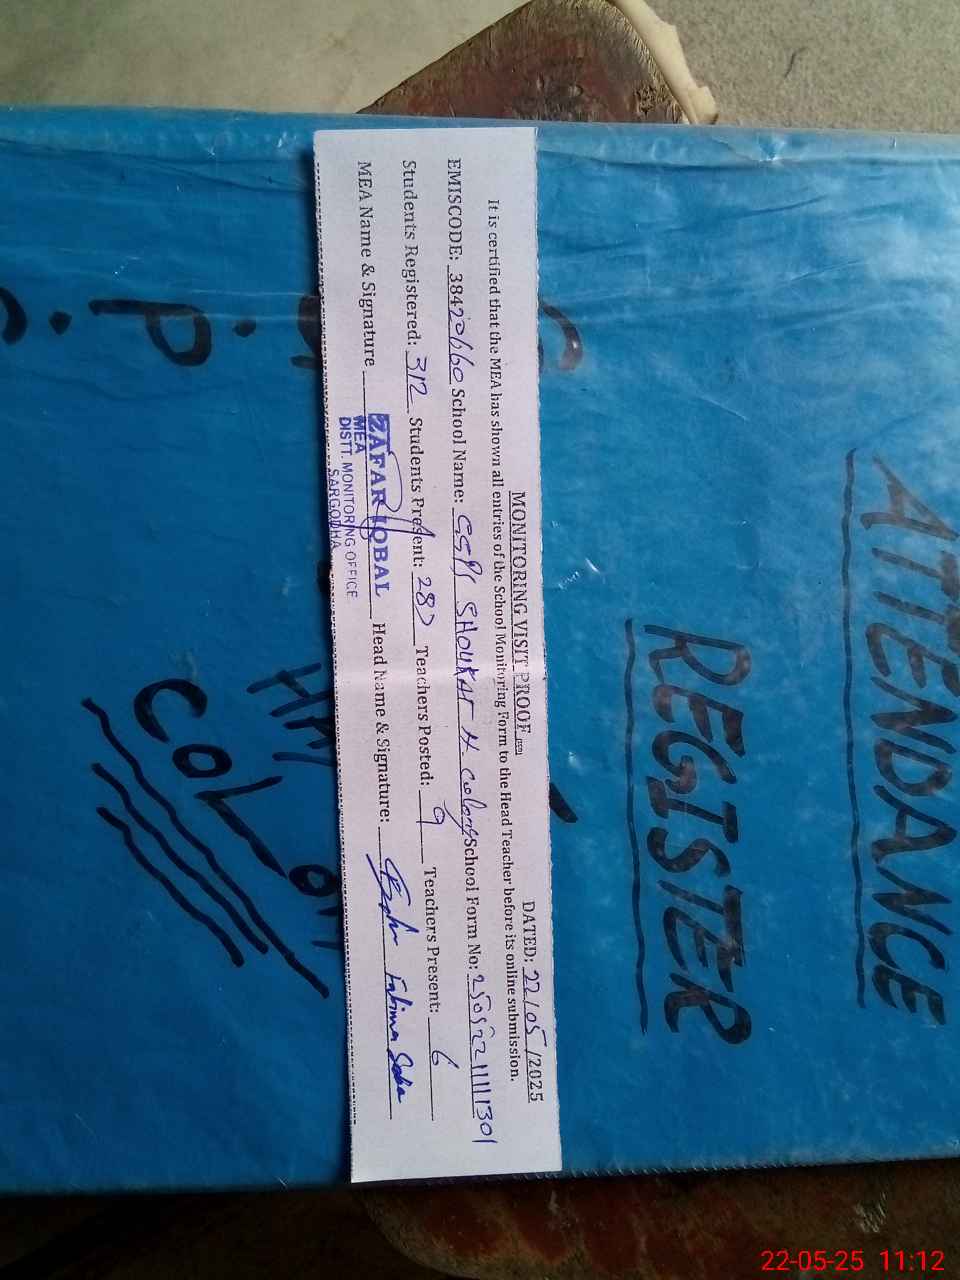 MONITORING VISIT PROOF
DATED: 22/05/2025
It is certified that the MEA has shown all entries of the School Monitoring Form to the Head Teacher before its online submission.
EMISCODE: 38420660 School Name: GGPS SHOUKAT H Colony School Form No:
Students Registered: 312 Students Present: 287 Teachers Posted: 9 Teachers Present: 6
MEA Name & Signature Head Name & Signature: Fatima
ZAFAR IQBAL
MEA
DISTT. MONITORING OFFICE
SARGODHA
ATTENDANCE
REGISTER
COL
22-05-25 11:12